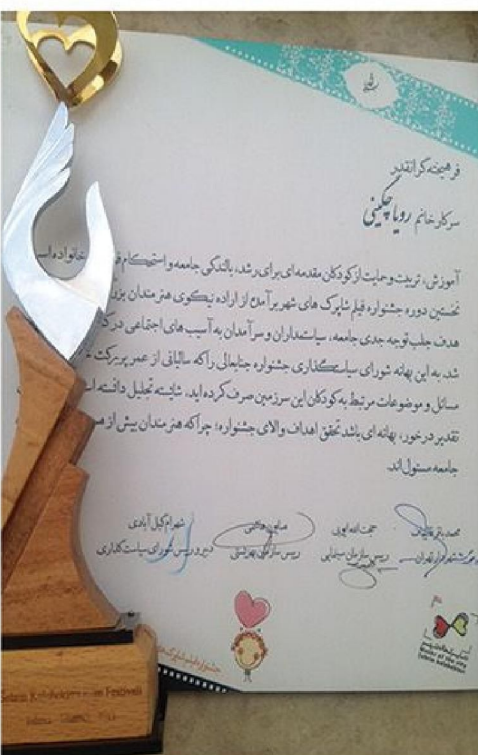 فرهیخته گرانقدر
سرکار خانم رویا چگینی
آموزش، تربیت و حمایت از کودکان مقدمه‌ای برای رشد، بالندگی جامعه و استحکام خانواده
نخستین دوره جشنواره فیلم شاپرک های شهر برآمده از اراده نیکوی هنرمندان
هدف جلب توجه جدی جامعه، سیاستمداران و سرآمدان به آسیب های اجتماعی در
شد. به این بهانه شورای سیاستگذاری جشنواره جنابعالی را که سالیانی از عمر پربرکت
مسائل و موضوعات مرتبط به کودکان این سرزمین صرف کرده اید، شایسته تجلیل دانسته
تقدیر درخور، بهانه ای باشد تحقق اهداف والای جشنواره؛ چرا که هنرمندان بیش از
جامعه مسئول اند.
محمدباقر قالیباف حجت الله ایوبی همایون هاشمی شهرام گیل آبادی
شهردار تهران رییس سازمان سینمایی رییس سازمان بهزیستی دبیر و رییس شورای سیاست گذاری
Festival